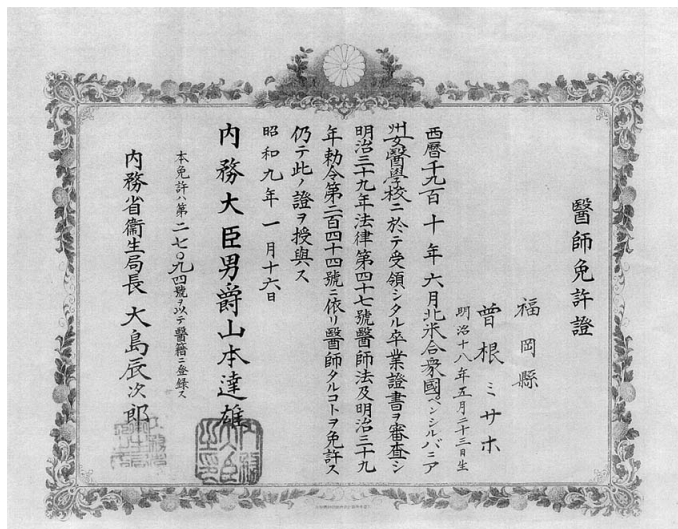 醫師免許證
福岡縣
曽根ミサホ
明治十八年五月二十三日生
西曆千九百十年六月北米合衆國ペンシルバニア
州女醫學校ニ於テ受領シタル卒業證書ヲ審査シ
明治三十九年法律第四十七號醫師法及明治三十九
年勅令第二百四十四號ニ依リ醫師タルコトヲ免許ス
仍テ此ノ證ヲ授與ス
昭和九年一月十六日
内務大臣男爵山本達雄
本免許ハ第二七〇九四號ヲ以テ醫籍ニ登録ス
内務省衞生局長大島辰次郎